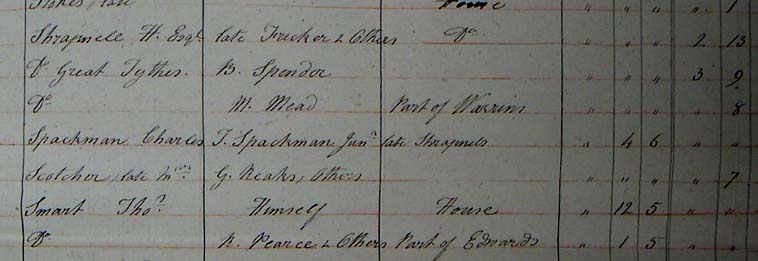 Stokes, late Home " " " " 1
Shrapnell H. Esqr. late Trucker & Others Do " " " 2 13
Do Great Tythes B. Spender " " " 3 9
Do M. Mead Part of Warrins " " " " 8
Spackman Charles T. Spackman Junr late Shrapnels " 4 6 " "
Scotcher, late Mrs. G. Neaks, Others " " " " 7
Smart Thos. Himself House " 12 5 " "
Do R. Pearce & Others Part of Edwards " 1 5 " "